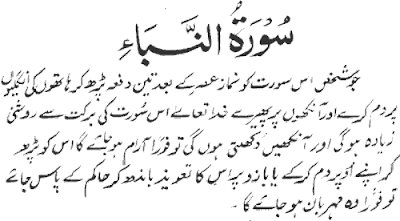 سُورَةُ النَّبَاءِ
جو شخص اس سورت کو نماز عصر کے بعد تین دفعہ پڑھ کر ہاتھوں کی انگلیوں
پر دم کرے اور آنکھوں پر پھیرے خدا تعالےٰ اس سُورت کی برکت سے روشنی
زیادہ ہو گی اور آنکھیں دکھتی ہوں گی تو فورًا آرام ہو جائے گا اس کو پڑھ
کر اپنے اُوپر دم کر کے یا بازو پر اس کا تعویذ باندھ کر حاکم کے پاس جائے
تو فورًا وہ مہربان ہو جائے گا ۔